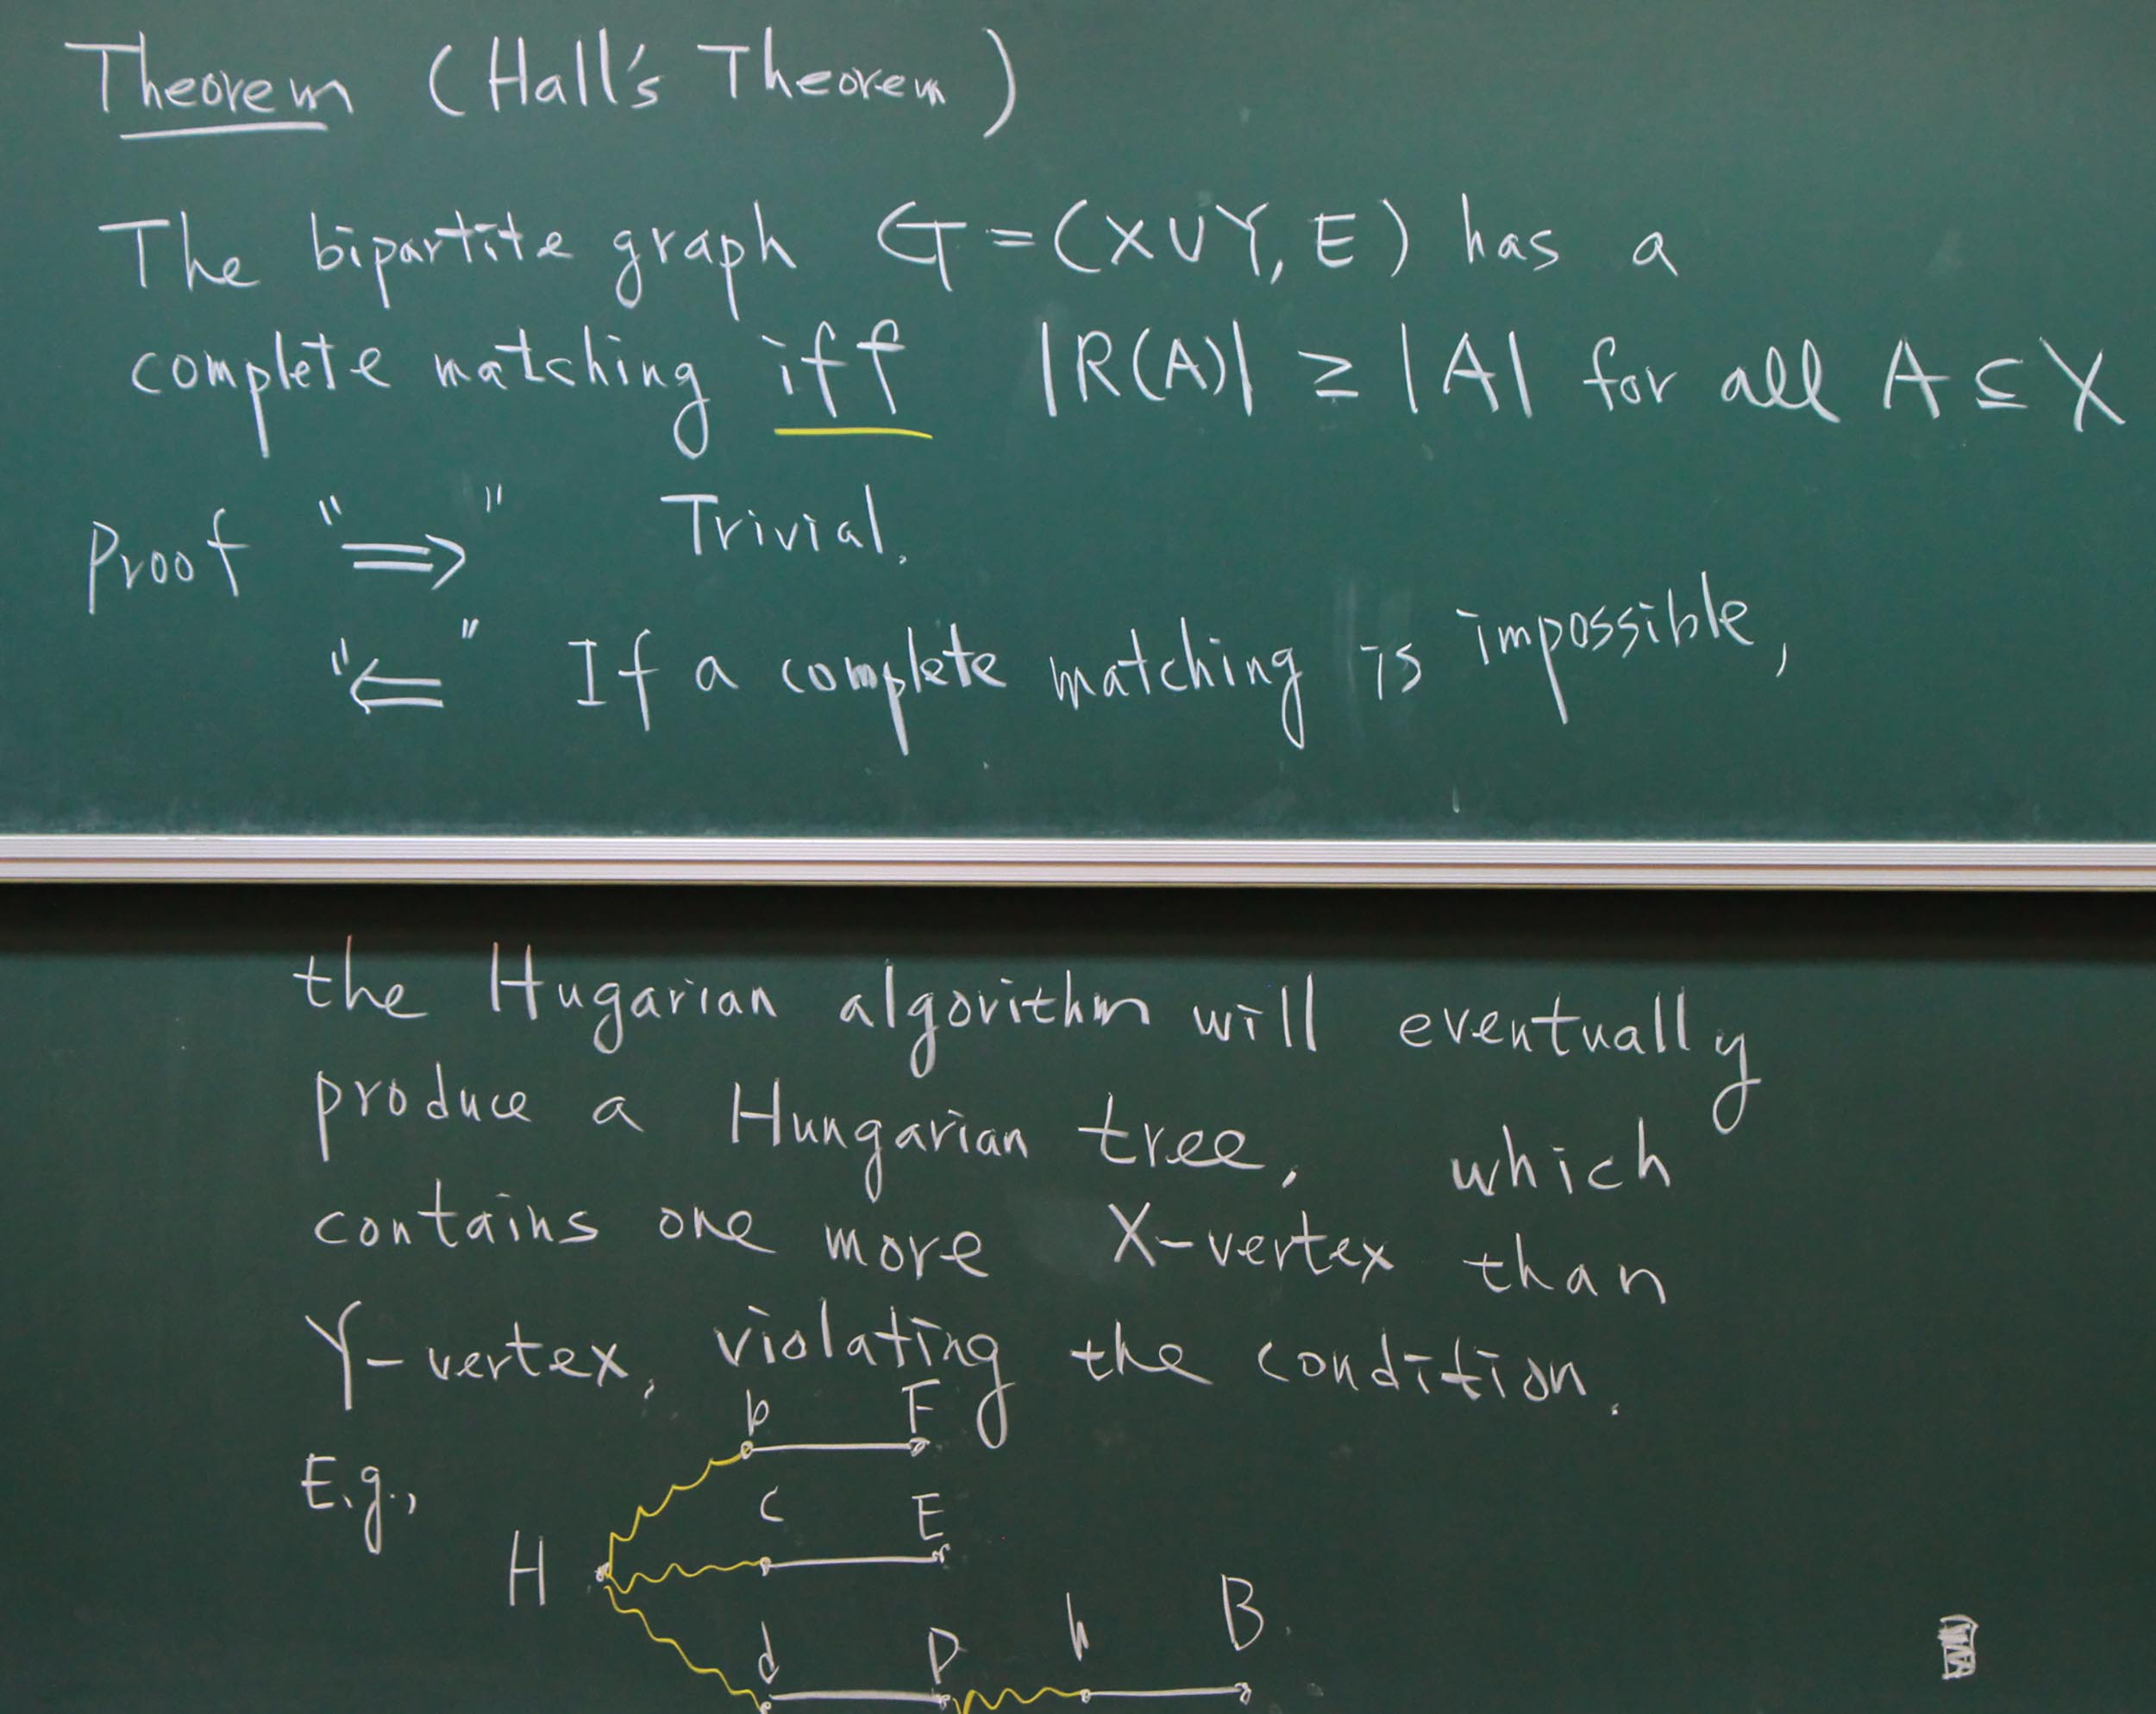 Theorem (Hall's Theorem)
The bipartite graph G=(X∪Y, E) has a
complete matching iff |R(A)| ≥ |A| for all A ⊆ X
Proof "⇒" Trivial.
"⇐" If a complete matching is impossible,
the Hugarian algorithm will eventually
produce a Hungarian tree, which
contains one more X-vertex than
Y-vertex, violating the condition.
b F
E.g.,
c E
H
d P h B